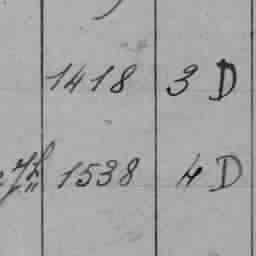 1418 3 D
1538 4 D